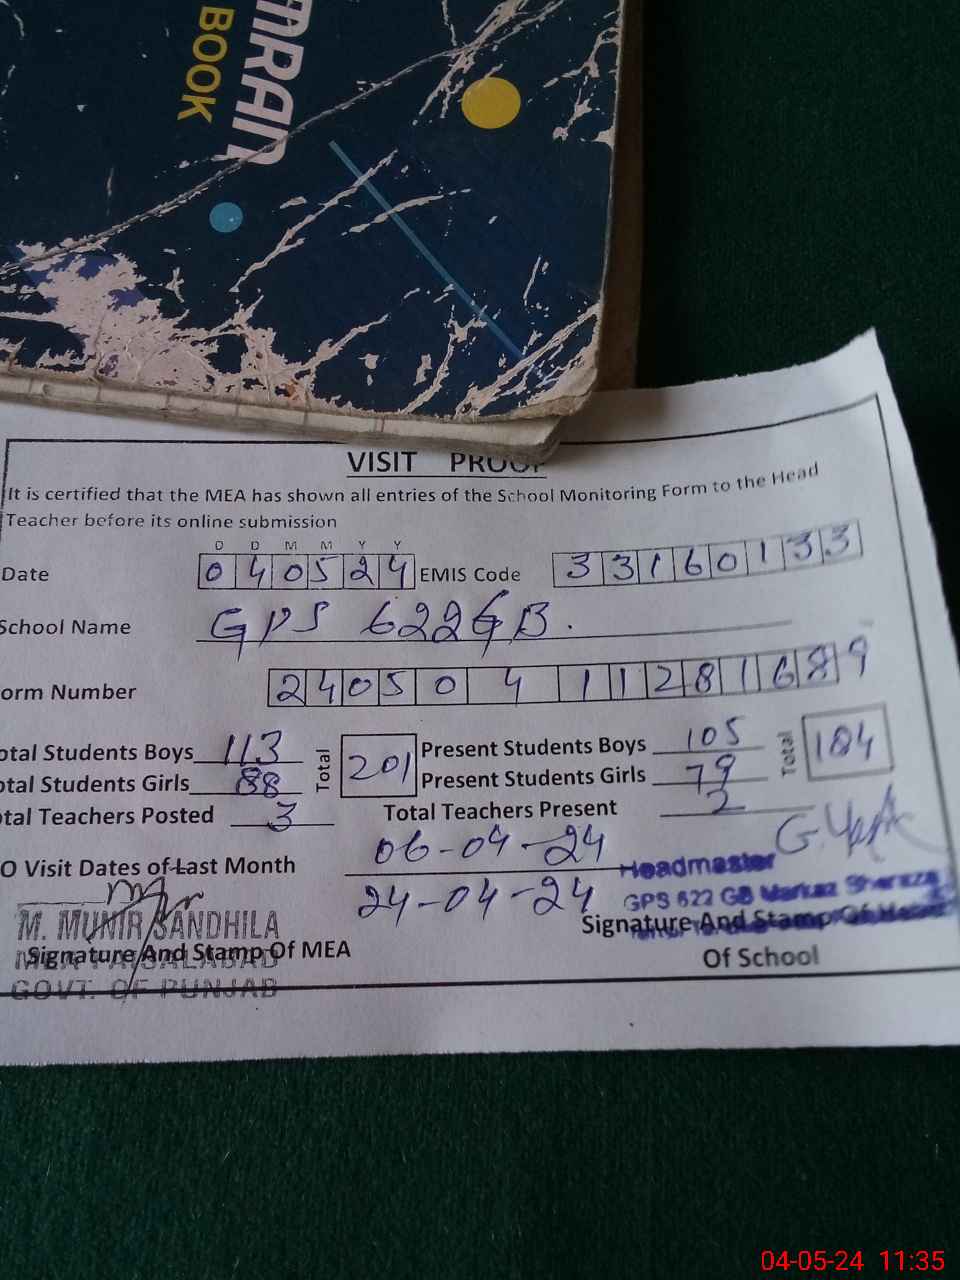 BOOK
VISIT PROOF
It is certified that the MEA has shown all entries of the School Monitoring Form to the Head
Teacher before its online submission
D D M M Y Y
Date 040524 EMIS Code 33160133
School Name GPS 622GB.
orm Number 2405041128168 9
otal Students Boys 113 Total 201 Present Students Boys 105 Total 184
otal Students Girls 88 Present Students Girls 79
otal Teachers Posted 3 Total Teachers Present 2
O Visit Dates of Last Month 06-04-24
24-04-24
Headmaster
GPS 622 GB Markaz
M. MUNIR SANDHILA
Signature And Stamp Of MEA
MEA FAISALABAD
GOVT. OF PUNJAB
Signature And Stamp Of Head
Of School
04-05-24 11:35